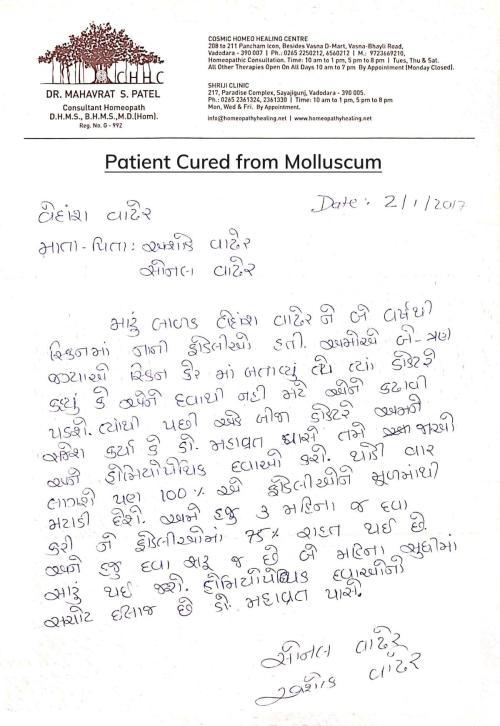 COSMIC HOMEO HEALING CENTRE
208 to 211 Pancham Icon, Besides Vasna D-Mart, Vasna-Bhayli Road,
Vadodara - 390 007 | Ph.: 0265 2250212, 6560212 | M.: 9723669210,
Homeopathic Consultation. Time: 10 am to 1 pm, 5 pm to 8 pm | Tues, Thu & Sat.
All Other Therapies Open On All Days 10 am to 7 pm By Appointment (Monday Closed).
CHHC
DR. MAHAVRAT S. PATEL
Consultant Homeopath
D.H.M.S., B.H.M.S.,M.D.(Hom).
Reg. No. G - 992
SHRIJI CLINIC
217, Paradise Complex, Sayajigunj, Vadodara - 390 005.
Ph.: 0265 2361324, 2361330 | Time: 10 am to 1 pm, 5 pm to 8 pm
Mon, Wed & Fri. By Appointment.
info@homeopathyhealing.net | www.homeopathyhealing.net
Patient Cured from Molluscum
Date: 2/1/2017
વેદાંશ વાઢેર
માતા-પિતા: અશોક વાઢેર
સોનલ વાઢેર
મારું બાળક વેદાંશ વાઢેર ને બે વર્ષથી
સ્કિનમાં નાની ફોડલીઓ હતી. અમોએ બે-ત્રણ
જગ્યાએ સ્કિન કેર માં બતાવ્યું તો ત્યાં ડોક્ટરે
કહ્યું કે એને દવાથી નહી મટે એને કઢાવી
પડશે. ત્યાંથી પછી એક બીજા ડોક્ટરે અમને
કર્યા કે ડો. મહાવ્રત પાસે તમે જાઓ
અને હોમિયોપેથિક દવાઓ કરો. થોડી વાર
લાગશે પણ 100 % એ ફોડલીઓને મૂળમાંથી
મટાડી દેશે. અમે હજુ ૩ મહિના જ દવા
કરી ને ફોડલીઓમાં 75% રાહત થઈ છે.
અને હજુ દવા શરૂ જ છે બે મહિના સુધીમાં
સારું થઈ જશે. હોમિયોપેથિક દવાઓનો
સચોટ ઈલાજ છે ડો. મહાવ્રત પાસે.
સોનલ વાઢેર
અશોક વાઢેર